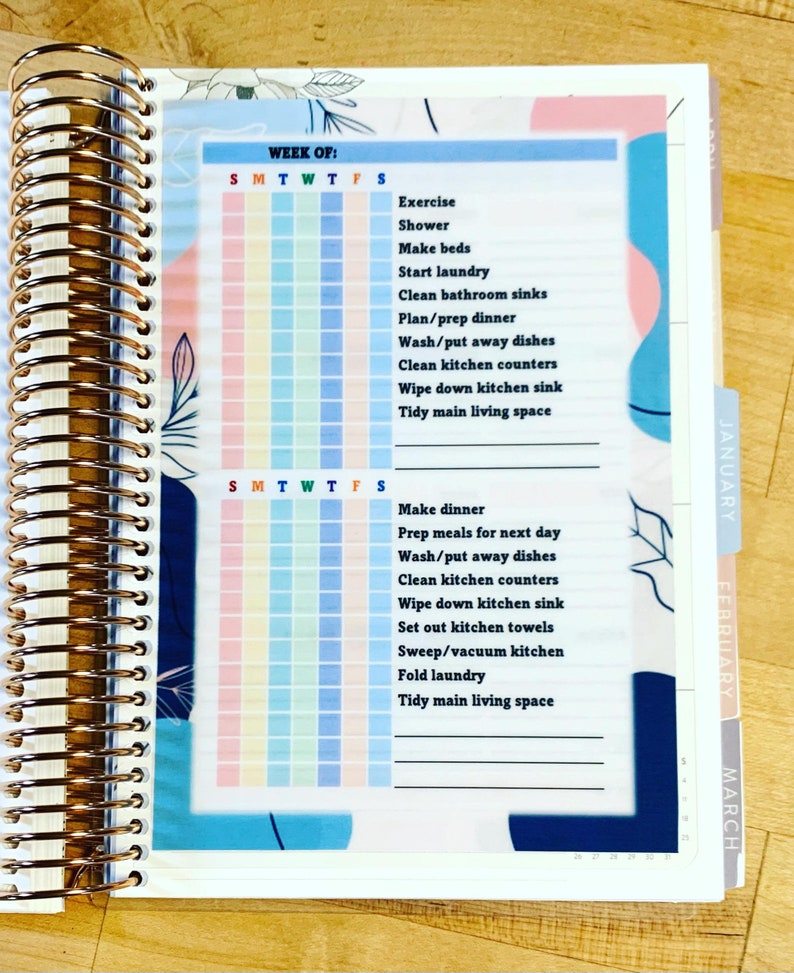 WEEK OF:
S M T W T F S
Exercise
Shower
Make beds
Start laundry
Clean bathroom sinks
Plan/prep dinner
Wash/put away dishes
Clean kitchen counters
Wipe down kitchen sink
Tidy main living space
S M T W T F S
Make dinner
Prep meals for next day
Wash/put away dishes
Clean kitchen counters
Wipe down kitchen sink
Set out kitchen towels
Sweep/vacuum kitchen
Fold laundry
Tidy main living space
JANUARY
FEBRUARY
MARCH
S
4
11
18
25
26 27 28 29 30 31